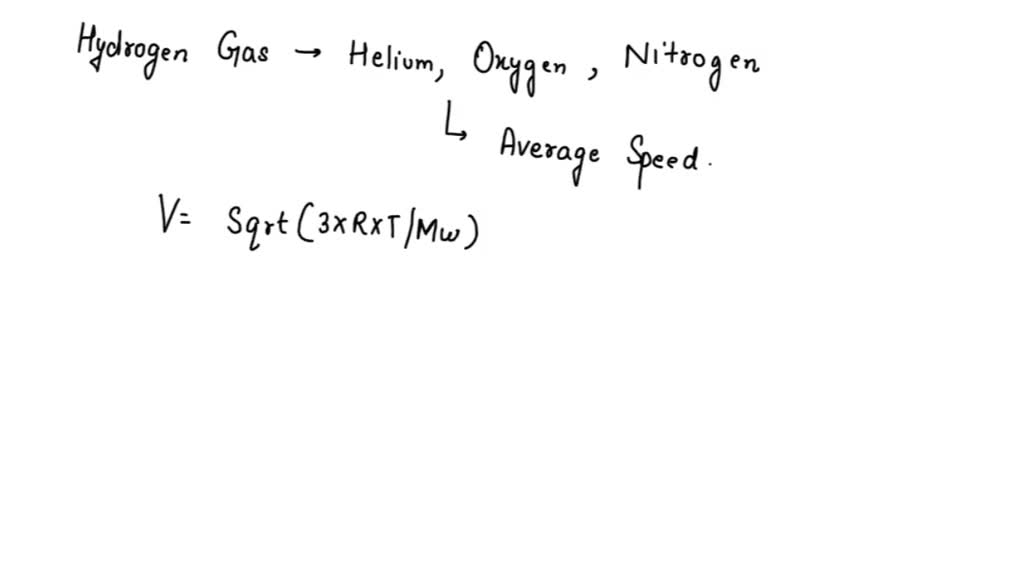 Hydrogen Gas → Helium, Oxygen, Nitrogen
↳ Average Speed.
V= Sqrt(3xRxT/Mw)